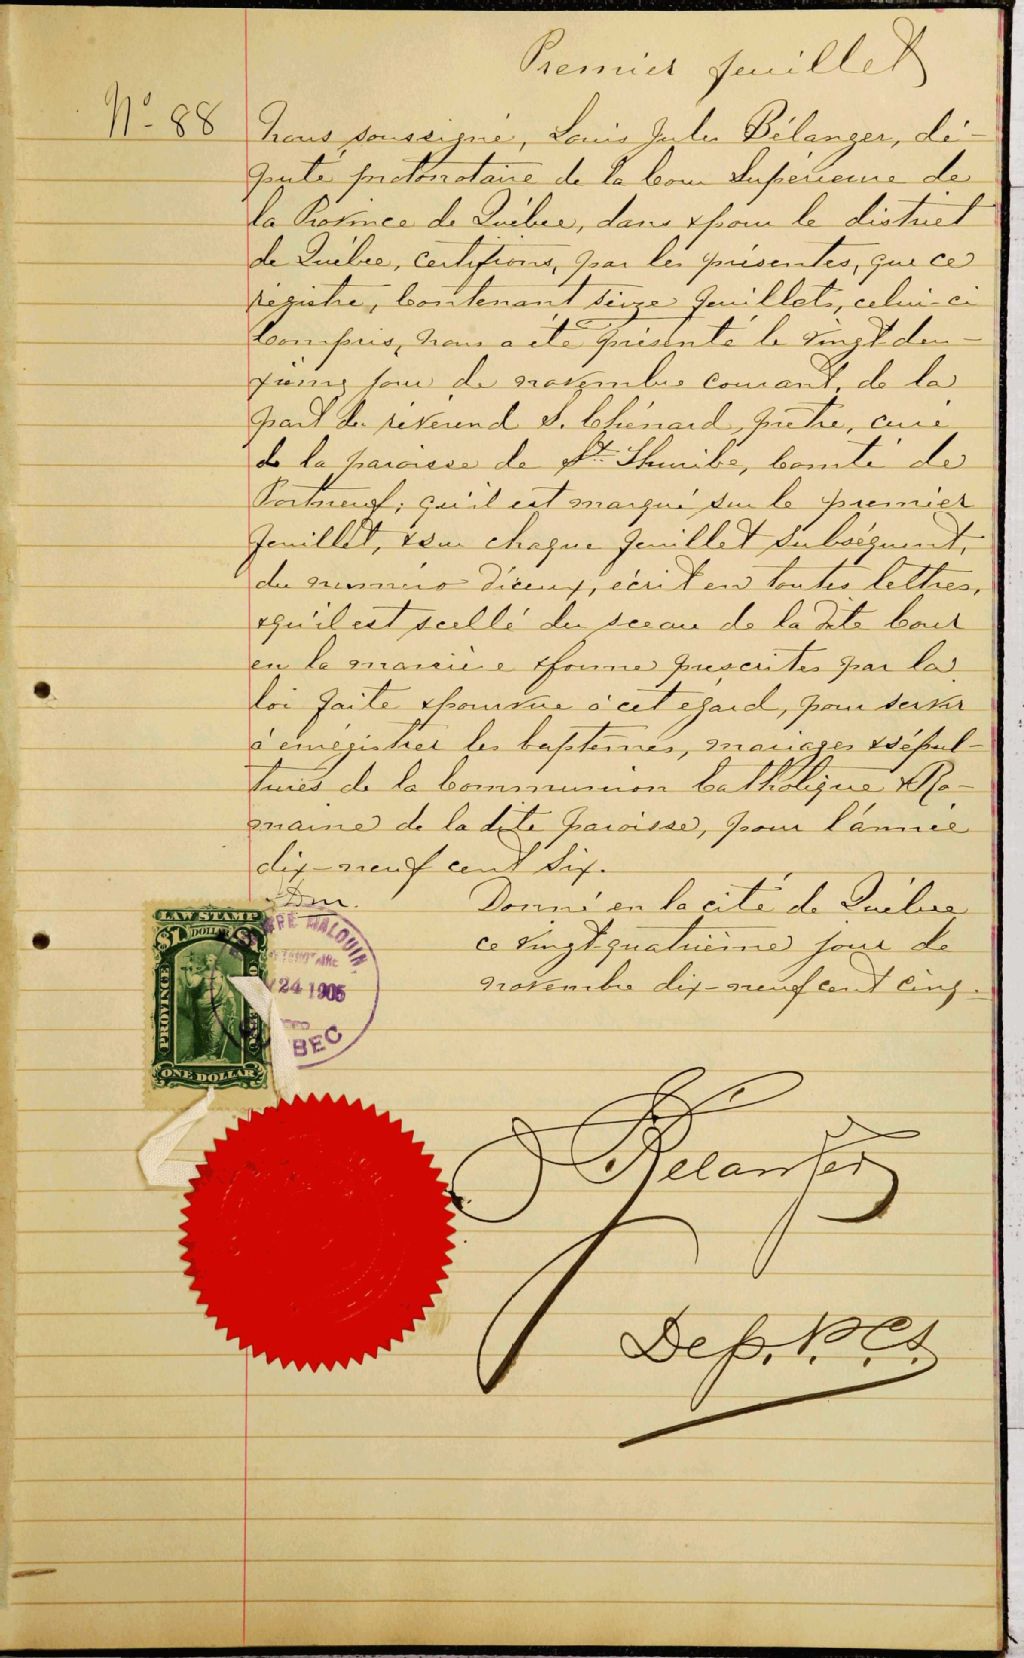 Premier feuillet
No. 88
Nous soussigné, Louis Jules Bélanger, dé-
puté protonotaire de la Cour Supérieure de
la Province de Québec, dans & pour le district
de Québec, certifions, par les présentes, que ce
régistre, contenant seize feuillets, celui-ci
compris, nous a été présenté le vingt-deu-
xième jour de novembre courant, de la
part du révérend S. Chénard, prêtre, curé
de la paroisse de St. Thuribe, Comté de
Portneuf; qu'il est marqué sur le premier
feuillet, & sur chaque feuillet subséquent,
du numéro d'iceux, écrit en toutes lettres,
& qu'il est scellé du sceau de la dite Cour
en la manière & forme prescrites par la
loi faite & pourvue à cet égard, pour servir
à enrégistrer les baptêmes, mariages & sépul-
tures de la Communion Catholique & Ro-
maine de la dite paroisse, pour l'année
dix-neuf cent six.
Donné en la cité de Québec
ce vingt-quatrième jour de
novembre dix-neuf cent cinq.
LAW STAMP
$1 DOLLAR $1
PROVINCE
ONE DOLLAR
MALOUIN,
24 1905
QUEBEC
Bélanger
Dep. P.C.S.